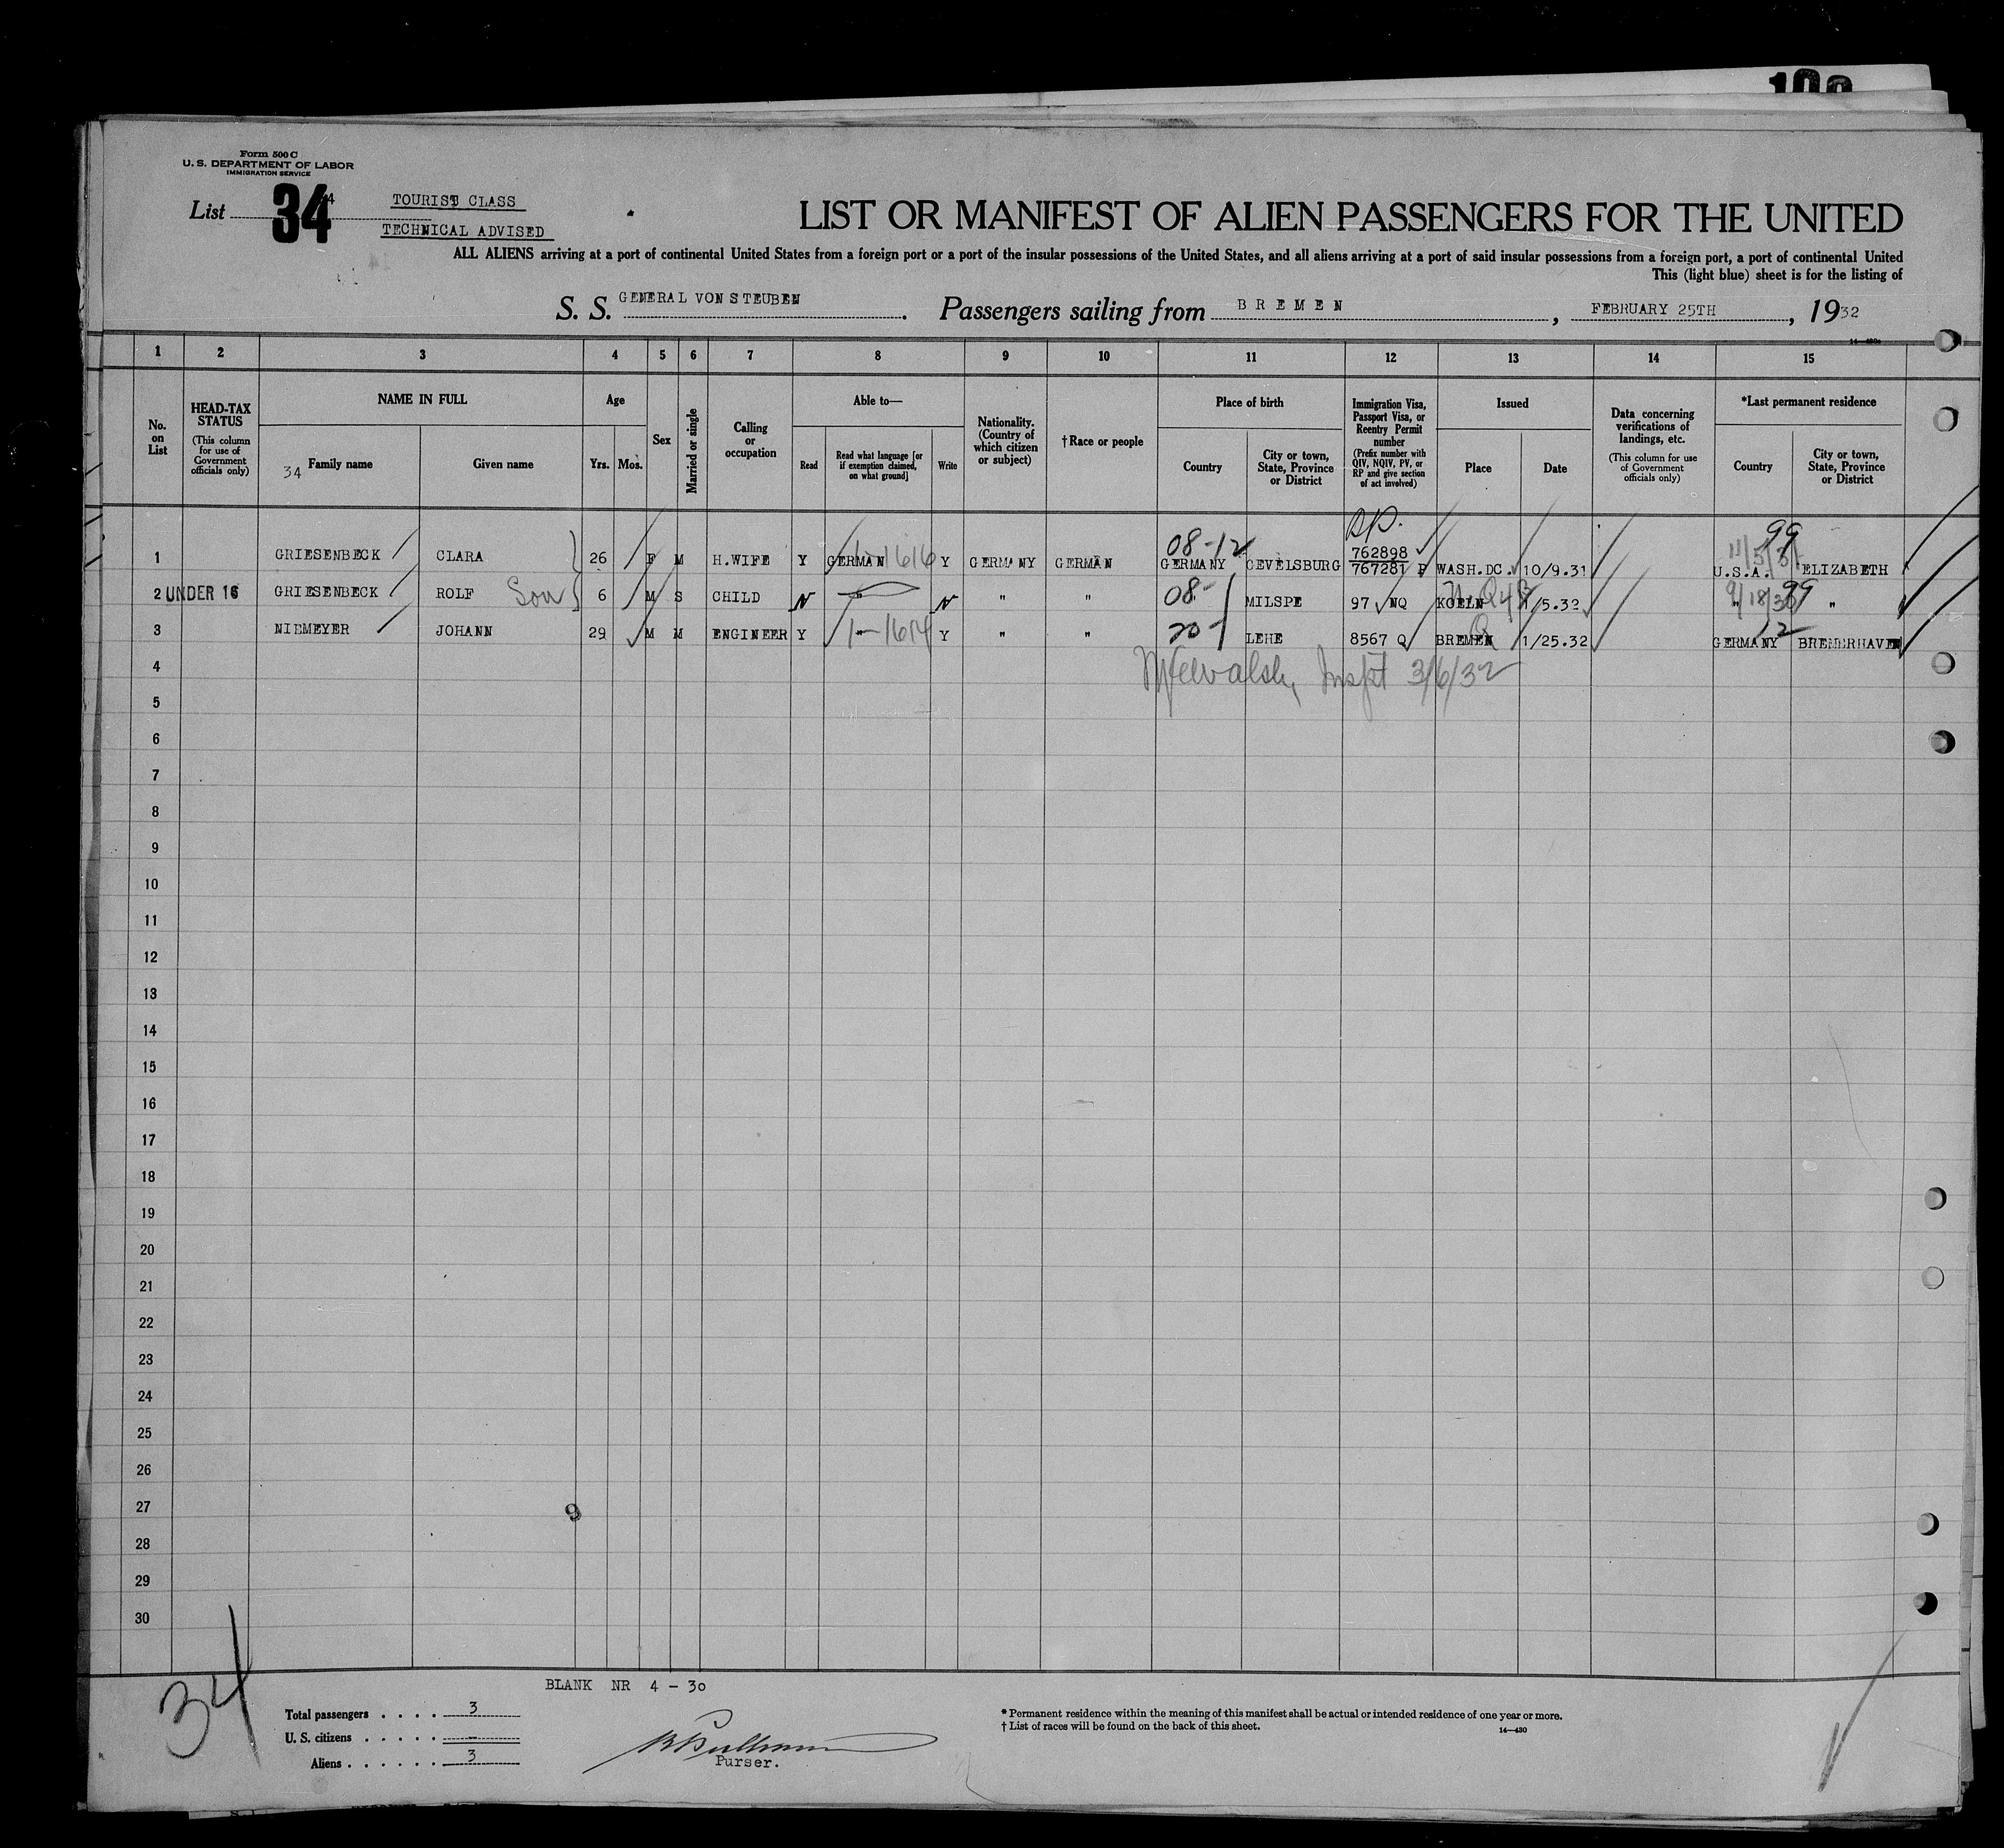 Form 500 C
U. S. DEPARTMENT OF LABOR
IMMIGRATION SERVICE
List 34
TOURIST CLASS
TECHNICAL ADVISED
LIST OR MANIFEST OF ALIEN PASSENGERS FOR THE UNITED
ALL ALIENS arriving at a port of continental United States from a foreign port or a port of the insular possessions of the United States, and all aliens arriving at a port of said insular possessions from a foreign port, a port of continental United
This (light blue) sheet is for the listing of
S. S. GENERAL VON STEUBEN. Passengers sailing from BREMEN, FEBRUARY 25TH, 1932
1 2 3 4 5 6 7 8 9 10 11 12 13 14 15
No. on List
HEAD-TAX STATUS (This column for use of Government officials only)
NAME IN FULL
34 Family name
Given name
Age
Yrs.
Mos.
Sex
Married or single
Calling or occupation
Able to—
Read
Read what language [or if exemption claimed, on what ground]
Write
Nationality. (Country of which citizen or subject)
†Race or people
Place of birth
Country
City or town, State, Province or District
Immigration Visa, Passport Visa, or Reentry Permit number (Prefix number with QIV, NQIV, PV, or RP and give section of act involved)
Issued
Place
Date
Data concerning verifications of landings, etc. (This column for use of Government officials only)
*Last permanent residence
Country
City or town, State, Province or District
RP.
08-12 99
11/5/31
762898
1 GRIESENBECK CLARA 26 F M H.WIFE Y GERMAN 1-1616 Y GERMANY GERMAN GERMANY CEVELSBURG 767281 P WASH.DC. 10/9.31 U.S.A. ELIZABETH
2 UNDER 16 GRIESENBECK ROLF Son 6 M S CHILD N " N " " 08- MILSPE 97 NQ KOELN 1/5.32 " 9/18/30 99 "
3 NIEMEYER JOHANN 29 M M ENGINEER Y " 1-1614 Y " " 20- LEHE 8567 Q BREMEN Q 1/25.32 12 GERMANY BREMERHAVEN
4 Inspt 3/6/32
5
6
7
8
9
10
11
12
13
14
15
16
17
18
19
20
21
22
23
24
25
26
27 9
28
29
30
34
BLANK NR 4 - 30
Total passengers . . . . 3
U. S. citizens . . . . . -
Aliens . . . . . . 3
Purser.
* Permanent residence within the meaning of this manifest shall be actual or intended residence of one year or more.
† List of races will be found on the back of this sheet.
14—430